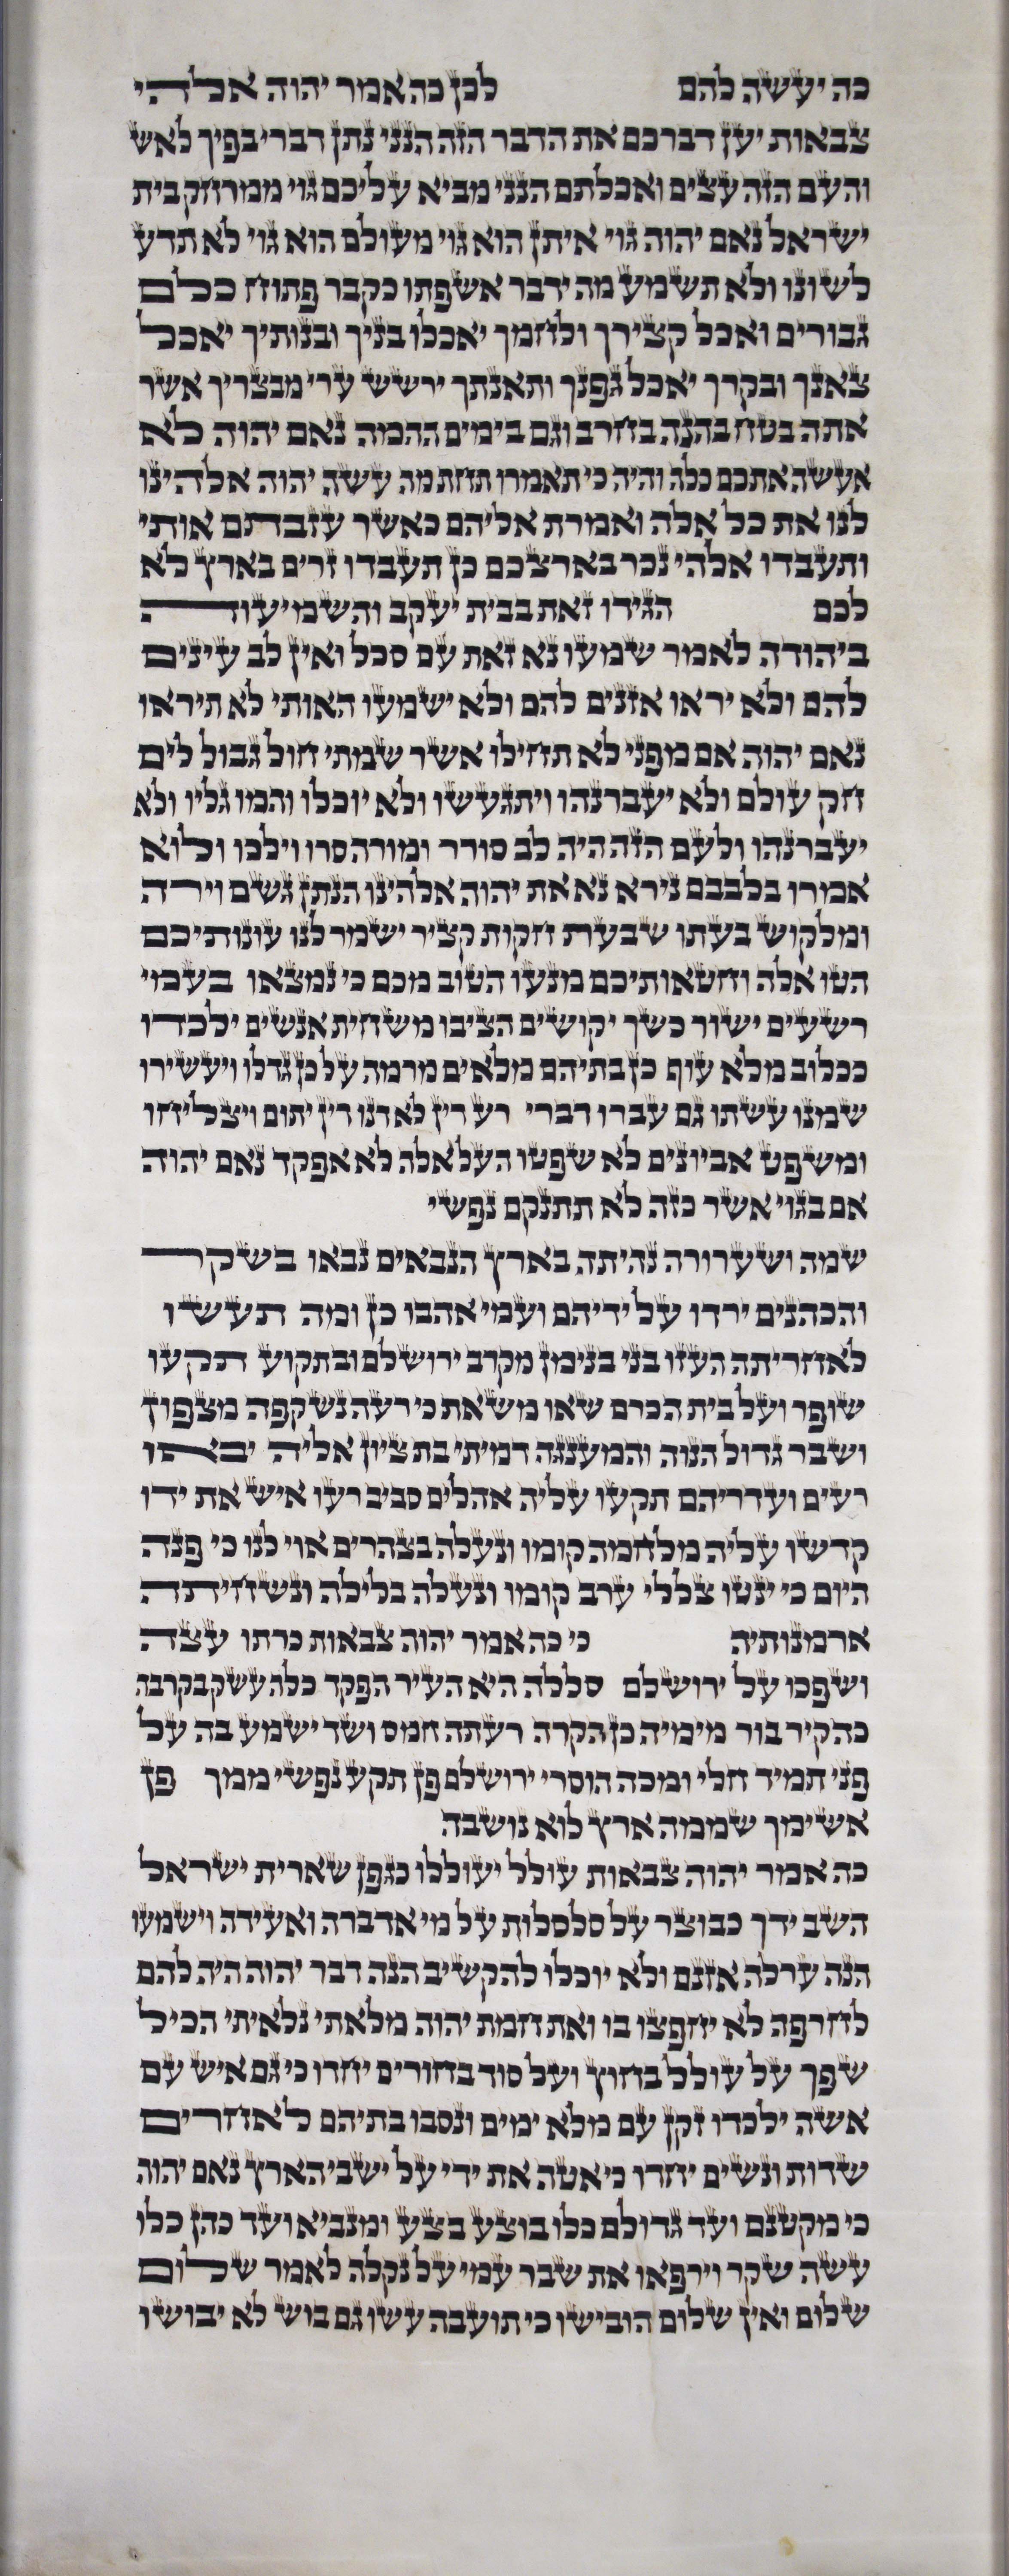 כה יעשה להם לכן כה אמר יהוה אלהי
צבאות יען דברכם את הדבר הזה הנני נתן דברי בפיך לאש
והעם הזה עצים ואכלתם הנני מביא עליכם גוי ממרחק בית
ישראל נאם יהוה גוי איתן הוא גוי מעולם הוא גוי לא תדע
לשונו ולא תשמע מה ידבר אשפתו כקבר פתוח כלם
גבורים ואכל קצירך ולחמך יאכלו בניך ובנותיך יאכל
צאנך ובקרך יאכל גפנך ותאנתך ירשש ערי מבצריך אשר
אתה בטח בהנה בחרב וגם בימים ההמה נאם יהוה לא
אעשה אתכם כלה והיה כי תאמרו תחת מה עשה יהוה אלהינו
לנו את כל אלה ואמרת אליהם כאשר עזבתם אותי
ותעבדו אלהי נכר בארצכם כן תעבדו זרים בארץ לא
לכם הגידו זאת בבית יעקב והשמיעוה
ביהודה לאמר שמעו נא זאת עם סכל ואין לב עינים
להם ולא יראו אזנים להם ולא ישמעו האותי לא תיראו
נאם יהוה אם מפני לא תחילו אשר שמתי חול גבול לים
חק עולם ולא יעברנהו ויתגעשו ולא יוכלו והמו גליו ולא
יעברנהו ולעם הזה היה לב סורר ומורה סרו וילכו ולוא
אמרו בלבבם נירא נא את יהוה אלהינו הנתן גשם וירה
ומלקוש בעתו שבעת חקות קציר ישמר לנו עונותיכם
הטו אלה וחטאותיכם מנעו הטוב מכם כי נמצאו בעמי
רשעים ישור כשך יקושים הציבו משחית אנשים ילכדו
ככלוב מלא עוף כן בתיהם מלאים מרמה על כן גדלו ויעשירו
שמנו עשתו גם עברו דברי רע דין לא דנו דין יתום ויצליחו
ומשפט אביונים לא שפטו העל אלה לא אפקד נאם יהוה
אם בגוי אשר כזה לא תתנקם נפשי
שמה ושערורה נהיתה בארץ הנבאים נבאו בשקר
והכהנים ירדו על ידיהם ועמי אהבו כן ומה תעשו
לאחריתה העזו בני בנימן מקרב ירושלם ובתקוע תקעו
שופר ועל בית הכרם שאו משאת כי רעה נשקפה מצפון
ושבר גדול הנוה והמענגה דמיתי בת ציון אליה יבאו
רעים ועדריהם תקעו עליה אהלים סביב רעו איש את ידו
קדשו עליה מלחמה קומו ונעלה בצהרים אוי לנו כי פנה
היום כי ינטו צללי ערב קומו ונעלה בלילה ונשחיתה
ארמנותיה כי כה אמר יהוה צבאות כרתו עצה
ושפכו על ירושלם סללה היא העיר הפקד כלה עשק בקרבה
כהקיר בור מימיה כן הקרה רעתה חמס ושד ישמע בה על
פני תמיד חלי ומכה הוסרי ירושלם פן תקע נפשי ממך פן
אשימך שממה ארץ לוא נושבה
כה אמר יהוה צבאות עולל יעוללו כגפן שארית ישראל
השב ידך כבוצר על סלסלות על מי אדברה ואעידה וישמעו
הנה ערלה אזנם ולא יוכלו להקשיב הנה דבר יהוה היה להם
לחרפה לא יחפצו בו ואת חמת יהוה מלאתי נלאיתי הכיל
שפך על עולל בחוץ ועל סוד בחורים יחדו כי גם איש עם
אשה ילכדו זקן עם מלא ימים ונסבו בתיהם לאחרים
שדות ונשים יחדו כי אטה את ידי על ישבי הארץ נאם יהוה
כי מקטנם ועד גדולם כלו בוצע בצע ומנביא ועד כהן כלו
עשה שקר וירפאו את שבר עמי על נקלה לאמר שלום
שלום ואין שלום הובישו כי תועבה עשו גם בוש לא יבושו